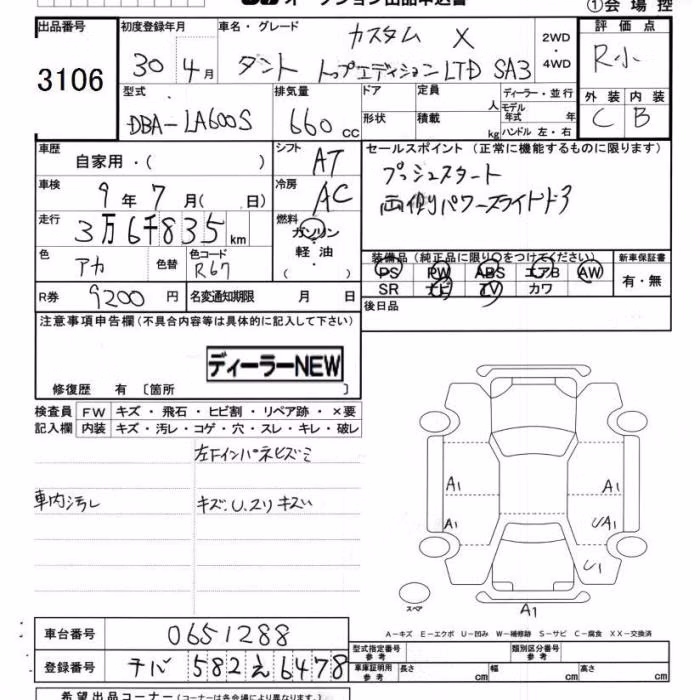 オークション出品申込書 ①会場控
出品番号 初度登録年月 車名・グレード カスタム X 2WD・4WD 評価点
3106 30 4月 タント トップエディションLTD SA3 R小
型式 排気量 ドア 定員 人 ディーラー・並行 外装 内装
DBA-LA600S 660cc 形状 積載 kg モデル年式 年 ハンドル 左・右 C B
車歴 自家用・( ) シフト AT セールスポイント (正常に機能するものに限ります)
車検 9年7月( 日) 冷房 AC プッシュスタート
走行 3万6千835km 燃料 ガソリン・軽油・( ) 両側パワースライドドア
色 アカ 色替 色コード R67 装備品(純正品に限り○をつけてください) 新車保証書
PS PW ABS エアB AW 有・無
R券 9200円 名変通知期限 月 日 SR ナビ TV カワ
後日品
注意事項申告欄(不具合内容等は具体的に記入して下さい)
ディーラーNEW
修復歴 有 〔箇所 〕
検査員 FW キズ・飛石・ヒビ割・リペア跡・×要
記入欄 内装 キズ・汚レ・コゲ・穴・スレ・キレ・破レ
左Fインパネヒズミ
車内汚レ キズ.U.スリキズい
A1 A1
A1 UA1
U1
スペア A1
A-キズ E-エクボ U-凹み W-補修跡 S-サビ C-腐食 XX-交換済
車台番号 0651288
型式指定番号参考 類別区分番号参考
登録番号 チバ 582 え 6478
車庫証明用参考 長さ cm 幅 cm 高さ cm
希望出品コーナー(コーナーは各会場により異なります。)